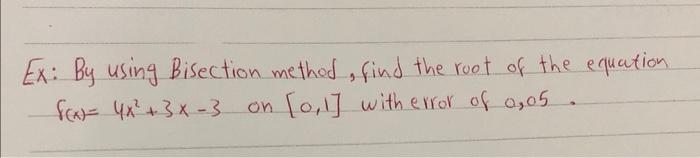 Ex: By using Bisection method, find the root of the equation
f(x)= 4x² + 3x - 3 on [0,1] with error of 0,05 .